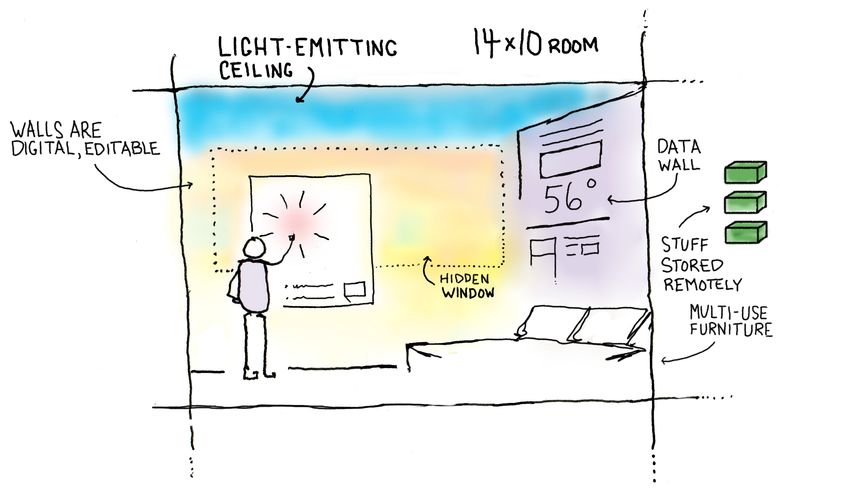 LIGHT-EMITTING
CEILING
14x10 ROOM
WALLS ARE
DIGITAL, EDITABLE
DATA
WALL
56°
STUFF
STORED
REMOTELY
HIDDEN
WINDOW
MULTI-USE
FURNITURE